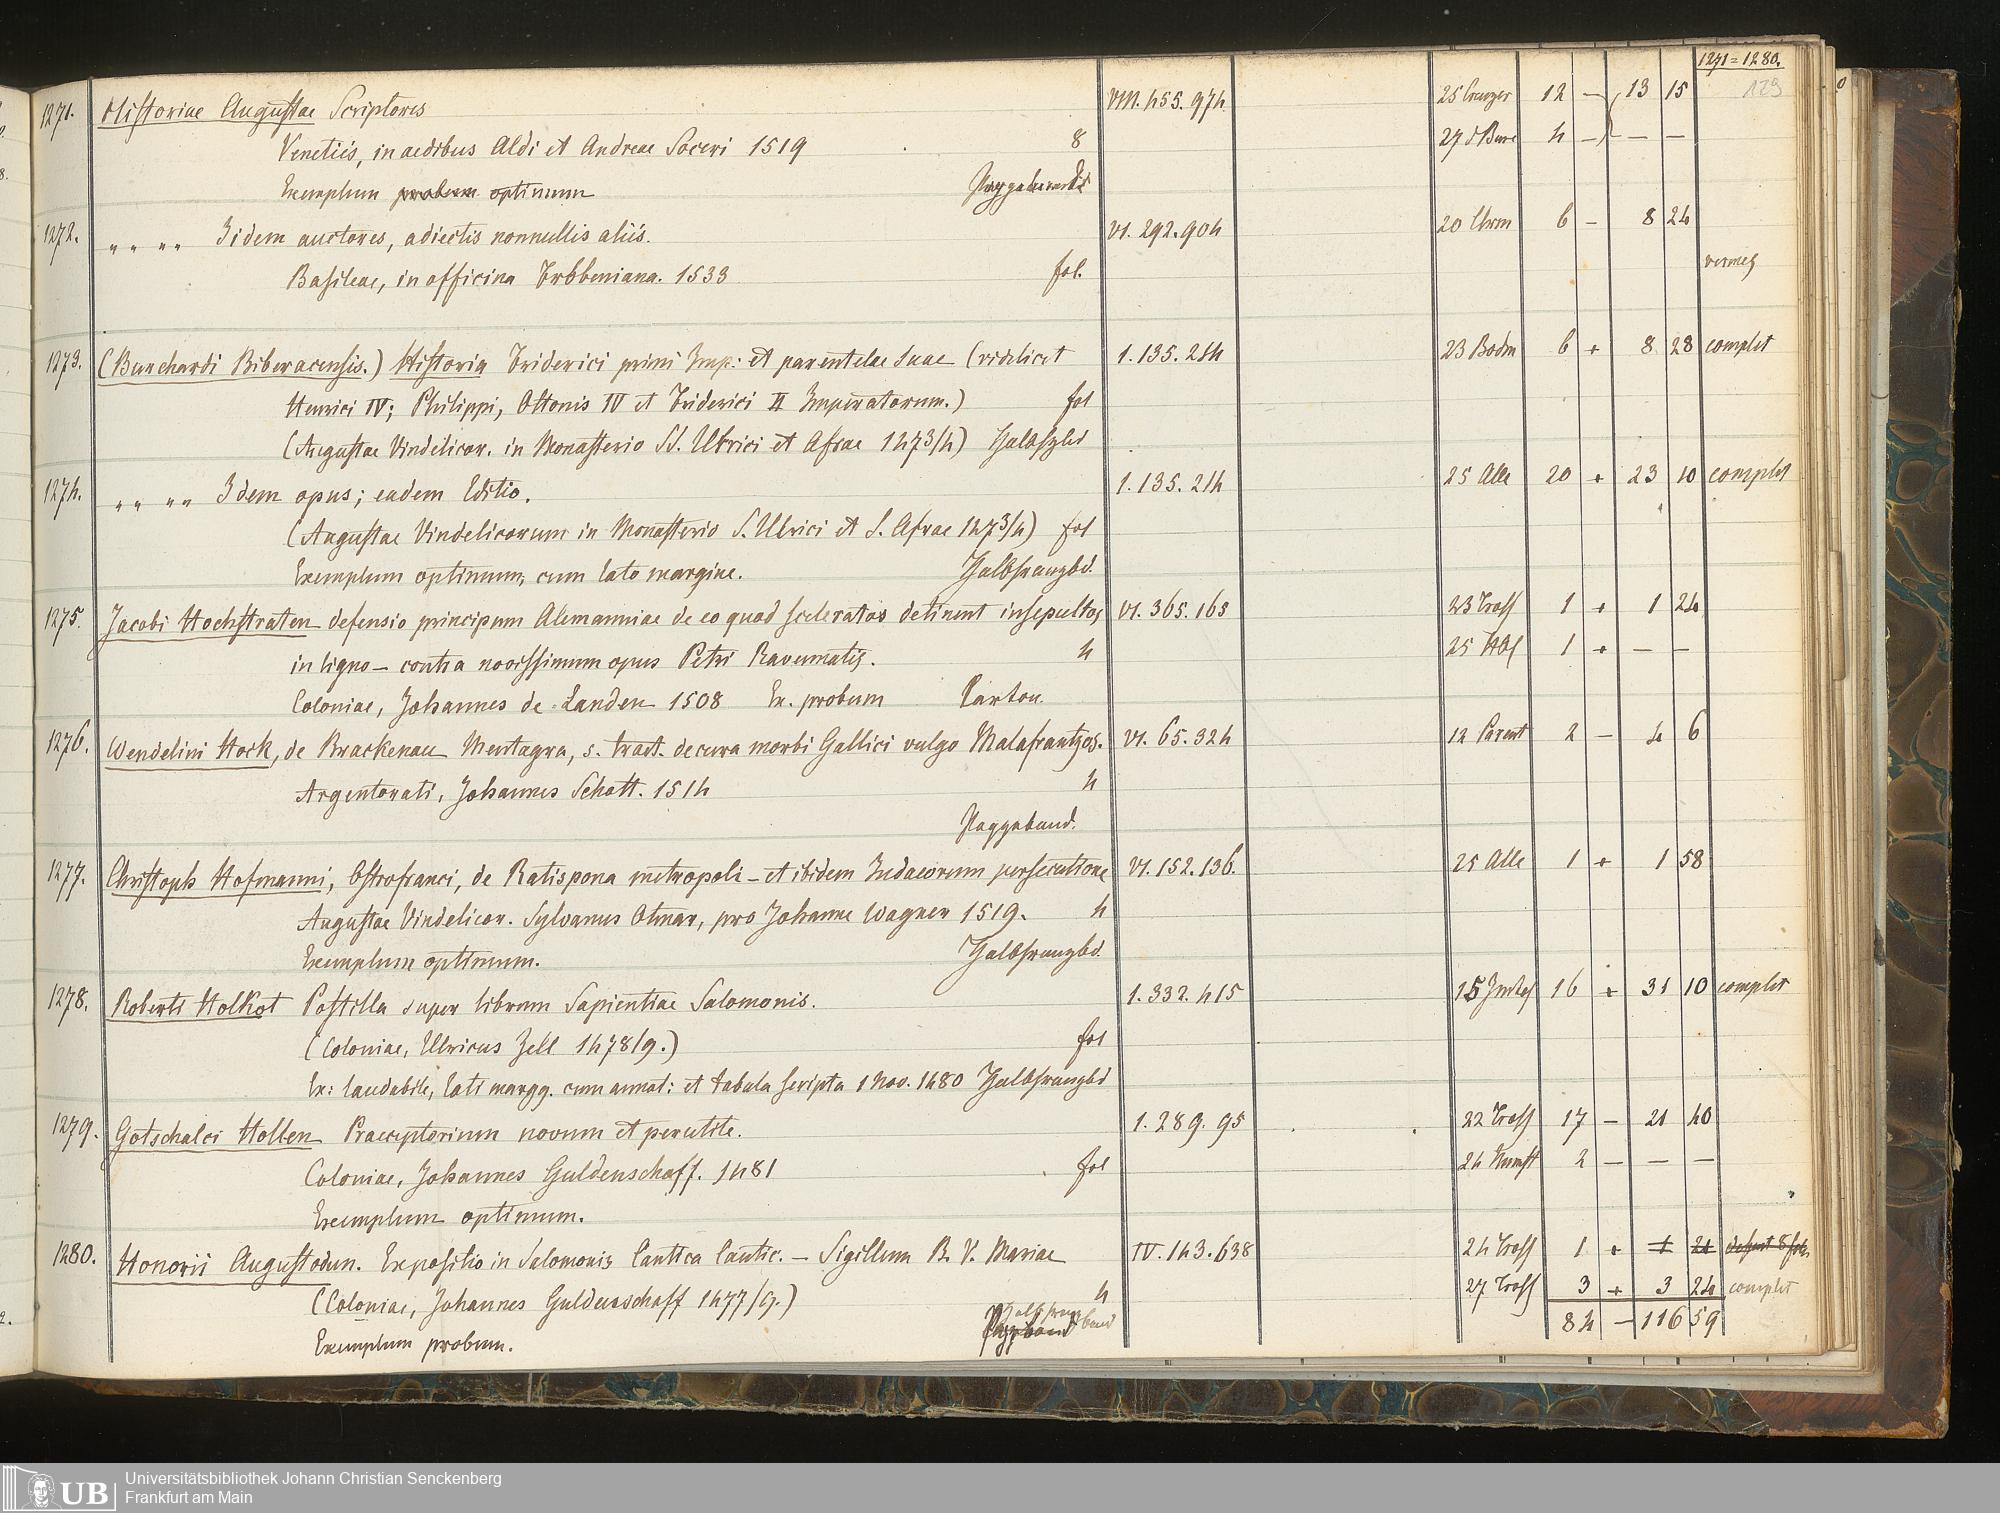 1271=1280.
129
1271. Historiae Augustae Scriptores VIII. 455. 974. 25 Creuzer 12 — 13 15
Venetiis, in aedibus Aldi et Andreae Soceri 1519 8 27 d Bure 4 — — —
Exemplum probum optimum Pappband
1272. " " " " Iidem auctores, adiectis nonnullis aliis. VI. 292. 904 20 6 — 8 24
Basileae, in officina Frobbeniana. 1533 fol.
1273. (Burchardi Biberacensis.) Historia Friderici primi Imp: et parentelae suae (videlicet 1. 135. 214 23 Bodm 6 + 8 28 complet
Henrici IV; Philippi, Ottonis IV et Friderici II Imperatorum.) fol
(Augustae Vindelicor. in Monasterio SS. Ulrici et Afrae 1473/4)
1274. " " " " Idem opus; eadem Editio. 1. 135. 214 25 Alle 20 + 23 10 complet
(Augustae Vindelicorum in Monasterio S. Ulrici et S. Afrae 1473/4) fol
Exemplum optimum, cum lato margine. Halbfranzbd.
1275. Jacobi Hochstraten defensio principum Alemanniae de eo quod sceleratos detinent insepultos VI. 365. 163 23 Tross 1 + 1 24
in ligno — contra novissimum opus Petri Ravennatis. 4 25 1 + — —
Coloniae, Johannes de Landen 1508 Ex. probum Carton.
1276. Wendelini Hock, de Brackenau Mentagra, s. tract. de cura morbi Gallici vulgo Malafrantzos. VI. 65. 324 12 Parent 2 — 4 6
Argentorati, Johannes Schott. 1514 4
Pappband.
1277. Christoph Hofmanni, Ostrofranci, de Ratispona metropoli — et ibidem Judaeorum persecutione VI. 152. 136. 25 Alle 1 + 1 58
Augustae Vindelicor. Sylvanus Otmar, pro Johanne Wagner 1519. 4
Exemplum optimum. Halbfranzbd.
1278. Roberti Holkot Postilla super librum Sapientiae Salomonis. 1. 332. 415 15 16 + 31 10 complet
(Coloniae, Ulricus Zell 1478/9.) fol
Ex: laudabile, lati margg. cum annot: et tabula scripta 1 Nov. 1480 Halbfranzbd
1279. Gotschalci Hollen Praeceptorium novum et perutile. 1. 289. 95 22 Tross 17 — 21 40
Coloniae, Johannes Guldenschaff. 1481 fol 24 2 — — —
Exemplum optimum.
1280. Honorii Augustodun. Expositio in Salomonis Cantica Cantic. — Sigillum B. V. Mariae IV. 143. 638 24 Tross 1 + 1 21 defect 8 fol.
(Coloniae, Johannes Guldenschaff 1477/9.) 4 27 Tross 3 + 3 24 complet
Exemplum probum. Pappband Halbfranzband 84 — 116 59
UB Universitätsbibliothek Johann Christian Senckenberg
Frankfurt am Main